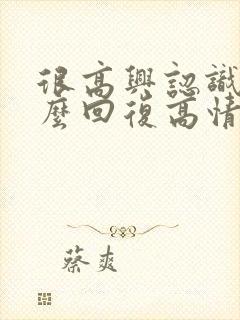 很高興認識
麼回復高情
蔡爽